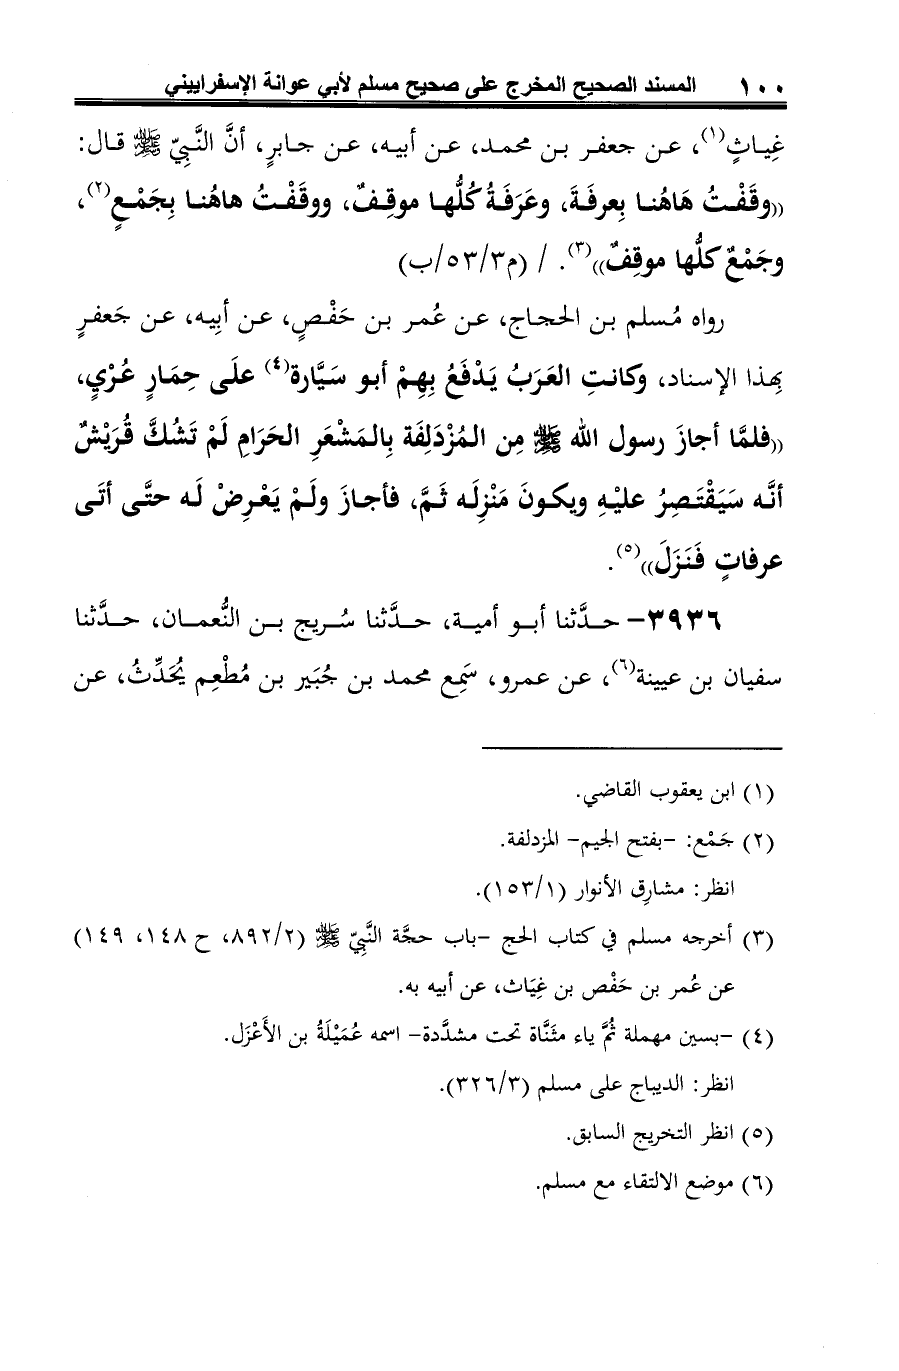 ١٠٠ المسند الصحيح المخرج على صحيح مسلم لأبي عوانة الإسفراييني
غِياثٍ(١)، عن جعفر بن محمد، عن أبيه، عن جابرٍ، أنَّ النَّبِيّ ﷺ قال:
((وقَفْتُ هَاهُنا بِعرفَةَ، وعَرَفَةُ كُلُّها موقِفٌ، ووقَفْتُ هاهُنا بِجَمْعٍ(٢)،
وجَمْعٌ كلُّها موقِفٌ))(٣). / (م٥٣/٣/ب)
رواه مُسلم بن الحجاج، عن عُمر بن حَفْصٍ، عن أبِيه، عن جَعفرٍ
بهذا الإسناد، وكانتِ العَرَبُ يَدْفَعُ بِهِمْ أبو سَيَّارة(٤) علَى حِمَارٍ عُرْيٍ،
((فلمَّا أجازَ رسول الله ﷺ مِن المُزْدَلِفَة بِالمَشْعَرِ الحَرَامِ لَمْ تَشُكَّ قُرَيْشٌ
أنَّه سَيَقْتَصِرُ عليْهِ ويكونَ مَنْزِلَه ثَمَّ، فأجازَ ولَمْ يَعْرِضْ لَه حتَّى أتَى
عرفاتٍ فَنَزَلَ))(٥).
٣٩٣٦- حدَّثنا أبو أمية، حدَّثنا سُريج بن النُّعمان، حدَّثنا
سفيان بن عيينة(٦)، عن عمرو، سَمِع محمد بن جُبَير بن مُطْعِم يُحَدِّثُ، عن
(١) ابن يعقوب القاضي.
(٢) جَمْع: -بفتح الجيم- المزدلفة.
انظر: مشارق الأنوار (١٥٣/١).
(٣) أخرجه مسلم في كتاب الحج -باب حجَّة النَّبِيّ ﷺ (٨٩٢/٢، ح ١٤٨، ١٤٩)
عن عُمر بن حَفْص بن غِيَاث، عن أبيه به.
(٤) -بسين مهملة ثُمَّ ياء مثنَّاة تحت مشدَّدة- اسمه عُمَيْلَةُ بن الأَعْزَل.
انظر: الديباج على مسلم (٣٢٦/٣).
(٥) انظر التخريج السابق.
(٦) موضع الالتقاء مع مسلم.